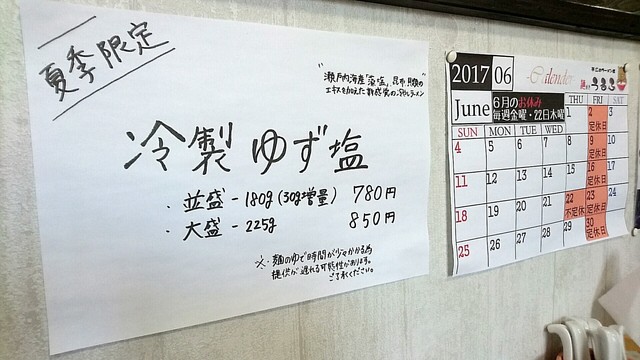 夏季限定
"瀬戸内海産「藻塩」昆布、貝類の"
エキスを加えた新感覚の冷やしラーメン
冷製 ゆず塩
・並盛 - 180g (30g増量) 780円
・大盛 - 225g 850円
※・麺のゆで時間が少々かかる為
提供が遅れる可能性があります。
ご了承ください。
2017 06
Calender
June
6月のお休み
毎週金曜・22日木曜
SUN MON TUE WED THU FRI
1 2 3
定休日
4 5 6 7 8 9 10
定休日
11 12 13 14 15 16 17
定休日
18 19 20 21 22 23 24
不定休 定休日
25 26 27 28 29 30
定休日